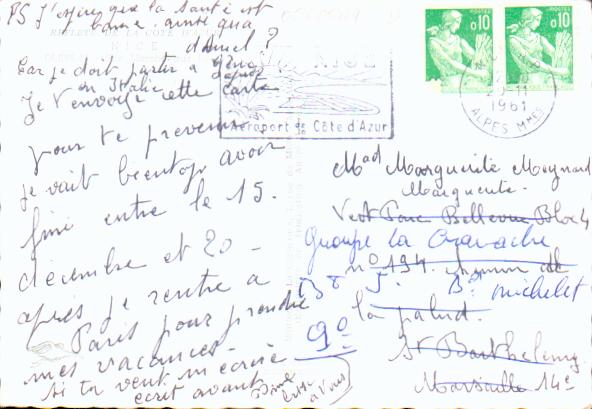 PS J'espère que la santé est
bonne ainsi qu'a
daniel ?
Car je doit partir a
en Italie
Je t'envoie cette carte
pour te prevenir
je vait bientot avoir
fini entre le 15.
décembre et 20 -
après je rentre a
Paris pour prendre
mes vacances -
si tu veut m'écrire
écrit avant
NICE
Aéroport de la Côte d'Azur
0,10
0,10
1961
ALPES MMES
Mad Marguerite Meynard
Marguerite.
Vert Parc Bellevue Bloc 4
groupe la Gravache
no 194. chemin de
Bt 5. Bd michelet
la palud.
9e
St Barthelemy
Marseille 14e